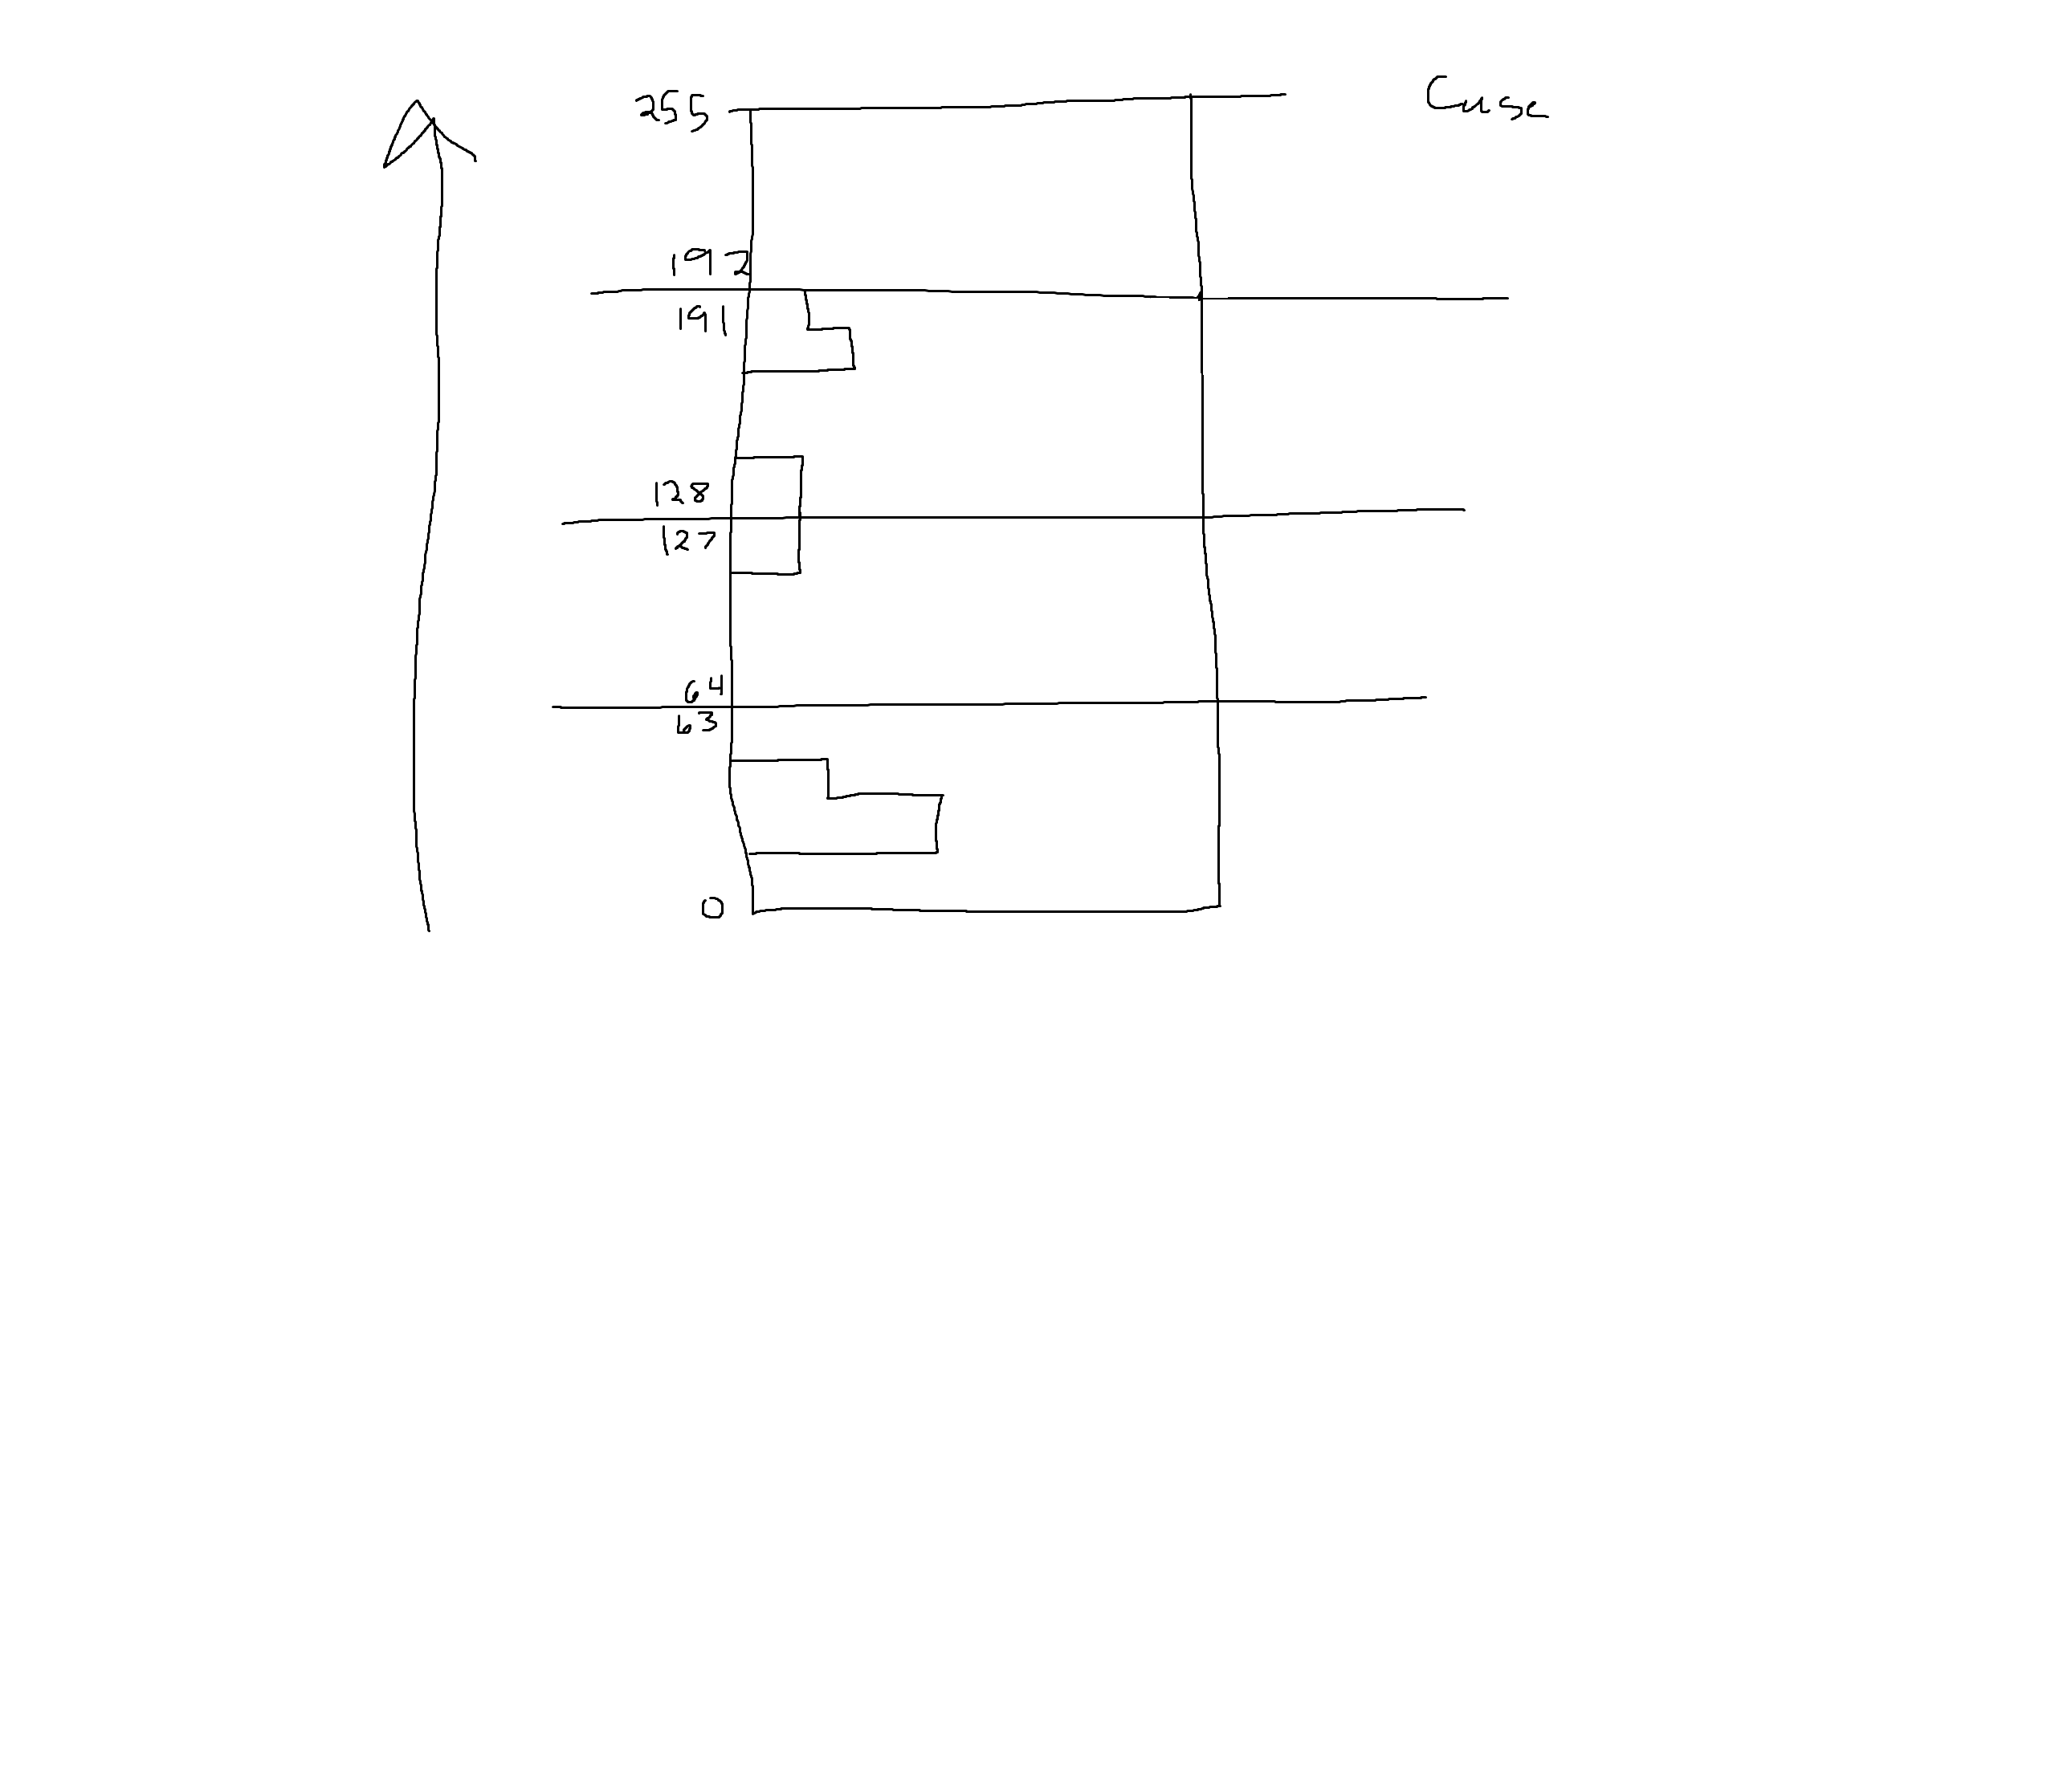 255
192
191
128
127
64
63
0